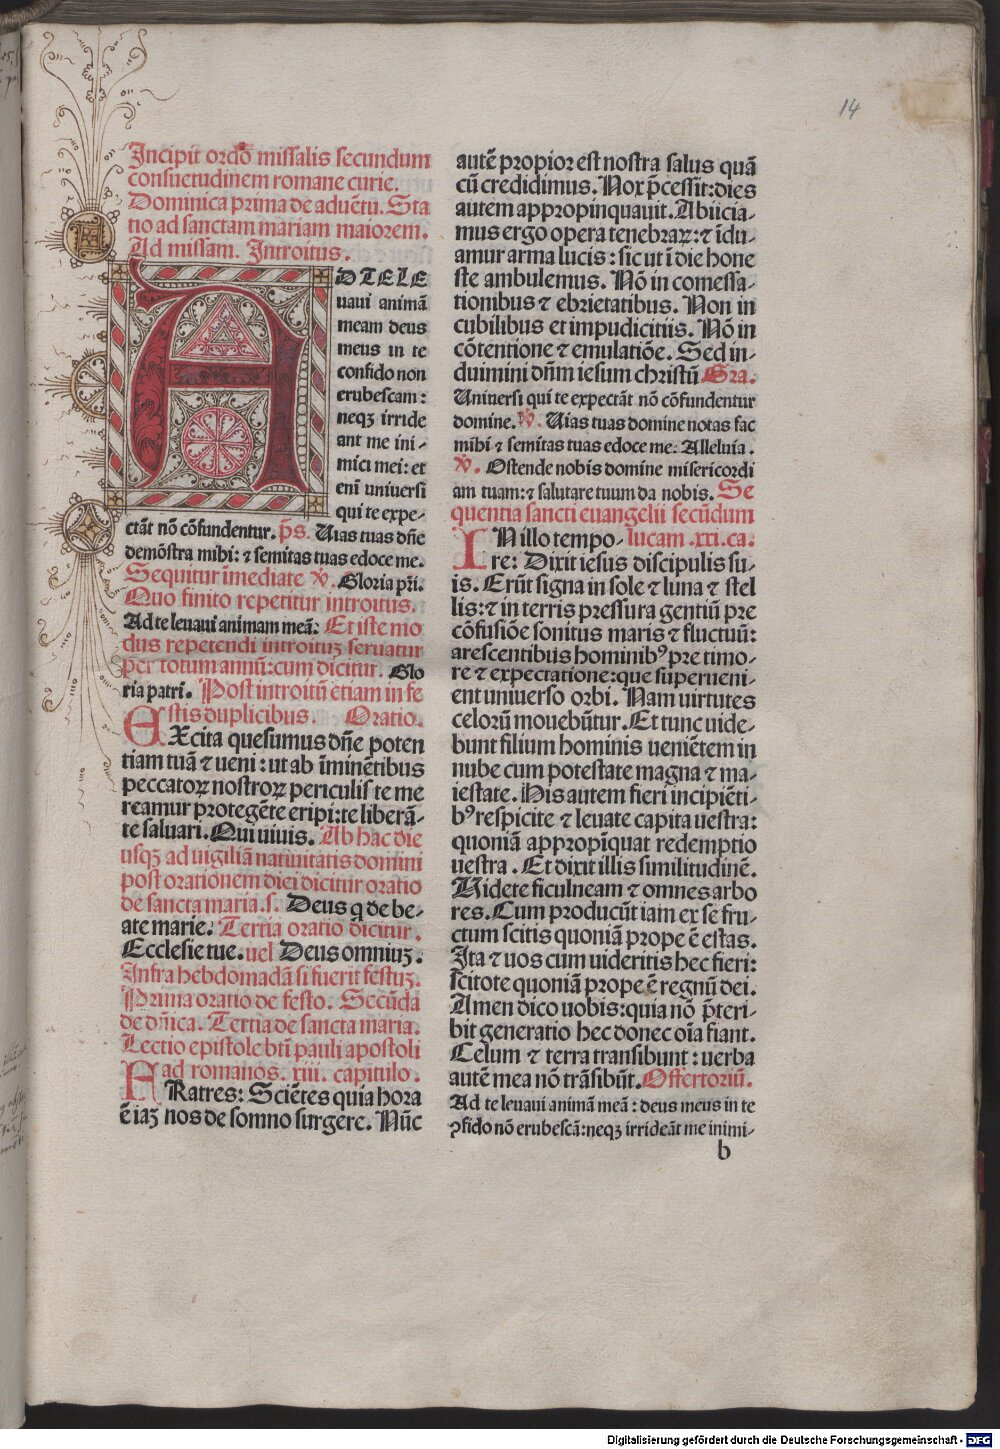 14
Incipit ordo missalis secundum
consuetudinem romane curie.
Dominica prima de aduētu. Sta
tio ad sanctam mariam maiorem.
Ad missam. Introitus.
AD TE LE
uaui animā
meam deus
meus in te
confido non
erubescam:
neqꝫ irride
ant me ini-
mici mei: et
eni uniuersi
qui te expe-
ctāt nō cōfundentur. p̄s. Uias tuas dn̄e
demōstra mihi: ⁊ semitas tuas edoce me.
Sequitur īmediate ℣. Gloria pr̄i.
Quo finito repetitur introitus.
Ad te leuaui animam meā: Et iste mo
dus repetendi introituꝫ seruatur
per totum annū: cum dicitur. Glo
ria patri. Post introitū etiam in fe
stis duplicibus. Oratio.
EXcita quesumus dn̄e poten
tiam tuā ⁊ ueni: ut ab īminētibus
peccatoꝝ nostroꝝ periculis te me
reamur protegēte eripi: te liberā-
te saluari. Qui uiuis. Ab hac die
usqꝫ ad uigiliā natiuitatis domini
post orationem diei dicitur oratio
de sancta maria. s. Deus q de be-
ate marie. Tertia oratio dicitur.
Ecclesie tue. uel Deus omniuꝫ.
Infra hebdomadā si fuerit festuꝫ.
Prima oratio de festo. Secūda
de dn̄ica. Tertia de sancta maria.
Lectio epistole bt̄i pauli apostoli
ad romanos. xiii. capitulo.
FRatres: Sciētes quia hora
ē iaꝫ nos de somno surgere. Nūc
autē propior est nostra salus quā
cū credidimus. Nox p̄cessit: dies
autem appropinquauit. Abiicia-
mus ergo opera tenebraꝝ: ⁊ īdu-
amur arma lucis: sic ut ī die hone
ste ambulemus. Nō in comessa-
tionibus ⁊ ebrietatibus. Non in
cubilibus et impudicitiis. Nō in
cōtentione ⁊ emulatiōe. Sed in-
duimini dn̄m iesum christū Gra.
Uniuersi qui te expectāt nō cōfundentur
domine. ℣. Uias tuas domine notas fac
mihi ⁊ semitas tuas edoce me. Alleluia.
℣. Ostende nobis domine misericordi
am tuam: ⁊ salutare tuum da nobis. Se
quentia sancti euangelii secūdum
IN illo tempo- lucam .xxi. ca.
re: Dixit iesus discipulis su-
is. Erūt signa in sole ⁊ luna ⁊ stel
lis: ⁊ in terris pressura gentiū pre
cōfusiōe sonitus maris ⁊ fluctuū:
arescentibus hominibꝰ pre timo-
re ⁊ expectatione: que superueni-
ent uniuerso orbi. Nam uirtutes
celorū mouebūtur. Et tunc uide-
bunt filium hominis ueniētem in
nube cum potestate magna ⁊ ma-
iestate. His autem fieri incipiēti-
bꝰ respicite ⁊ leuate capita uestra:
quoniā appropīquat redemptio
uestra. Et dixit illis similitudinē.
Uidete ficulneam ⁊ omnes arbo
res. Cum producūt iam ex se fru-
ctum scitis quoniā prope ē estas.
Ita ⁊ uos cum uideritis hec fieri:
scitote quoniā prope ē regnū dei.
Amen dico uobis: quia nō p̄teri-
bit generatio hec donec oīa fiant.
Celum ⁊ terra transibunt: uerba
autē mea nō trāsibūt. Offertoriū.
Ad te leuaui animā meā: deus meus in te
ꝯfido nō erubescā: neqꝫ irrideāt me inimi-
b
Digitalisierung gefördert durch die Deutsche Forschungsgemeinschaft - DFG